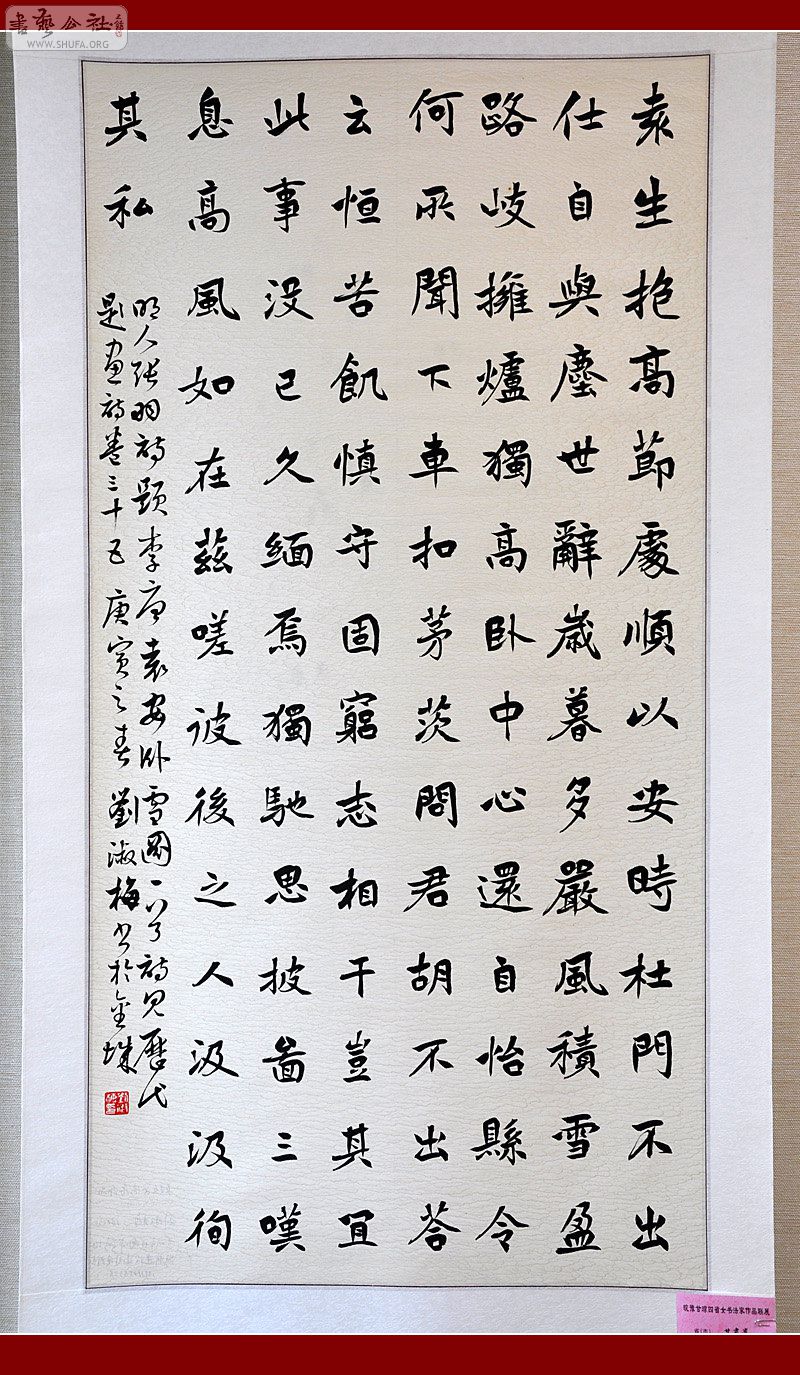 袁生抱高節處順以安時杜門不出
仕自與塵世辭歲暮多嚴風積雪盈
路岐擁爐獨高臥中心還自怡縣令
何所聞下車扣茅茨問君胡不出荅
云恒苦飢慎守固窮志相干豈其宜
此事没已久緬焉獨馳思披啚三嘆
息高風如在茲嗟彼後之人汲汲徇
其私
明人張羽詩題李唐袁安臥雪圖一首詩見歷代
題畫詩卷三十五 庚寅之春 劉淑梅書於金城
書藝公社
WWW.SHUFA.ORG
皖豫甘琼四省女书法家作品联展